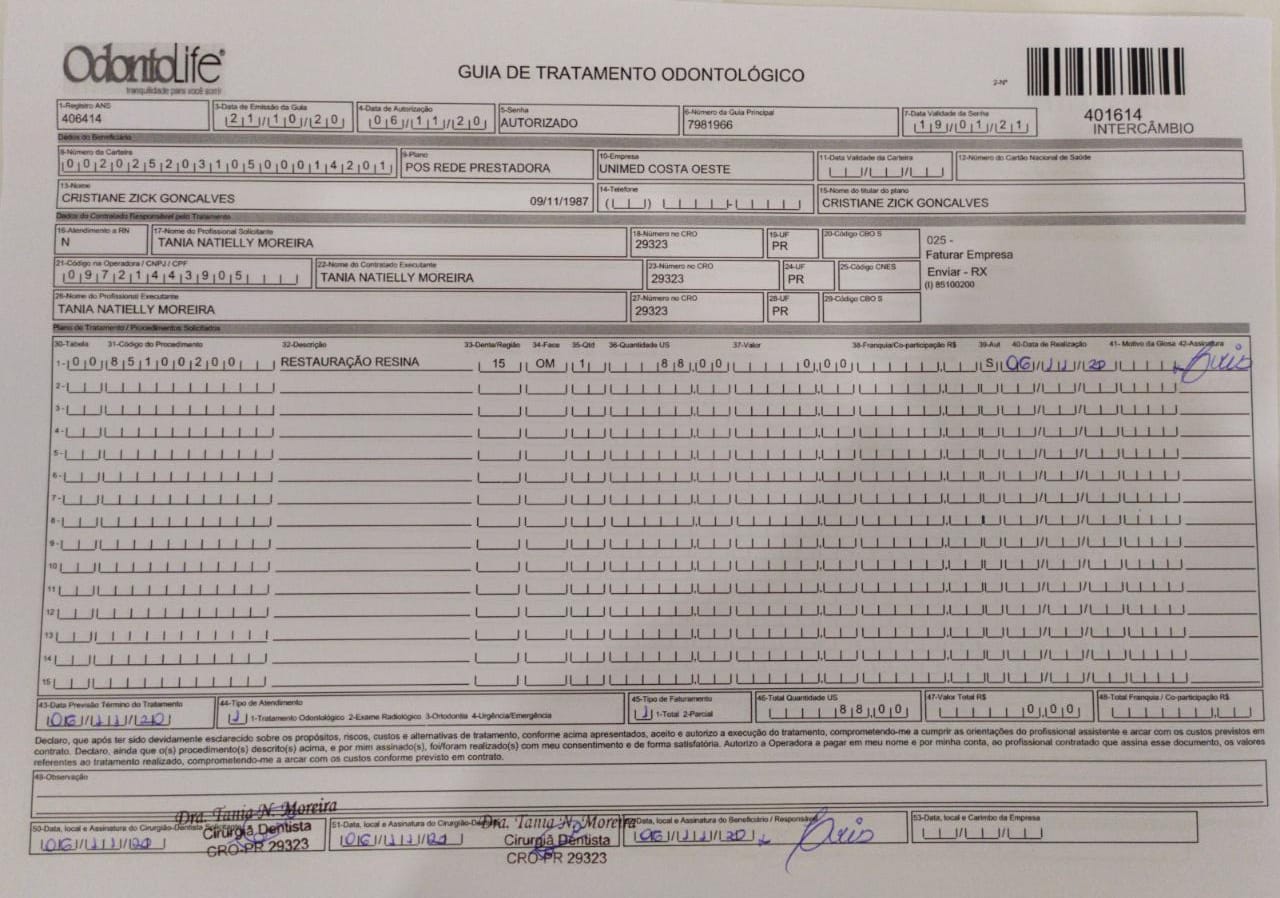 OdontoLife®
tranquilidade para você sorrir
GUIA DE TRATAMENTO ODONTOLÓGICO
2-Nº
401614
INTERCÂMBIO
1-Registro ANS
406414
3-Data de Emissão da Guia
21/10/20
4-Data de Autorização
06/11/20
5-Senha
AUTORIZADO
6-Número da Guia Principal
7981966
7-Data Validade da Senha
19/01/21
Dados do Beneficiário
8-Número da Carteira
00202520310500014201
9-Plano
POS REDE PRESTADORA
10-Empresa
UNIMED COSTA OESTE
11-Data Validade da Carteira
12-Número do Cartão Nacional de Saúde
13-Nome
CRISTIANE ZICK GONCALVES 09/11/1987
14-Telefone
15-Nome do titular do plano
CRISTIANE ZICK GONCALVES
Dados do Contratado Responsável pelo Tratamento
16-Atendimento a RN
N
17-Nome do Profissional Solicitante
TANIA NATIELLY MOREIRA
18-Número no CRO
29323
19-UF
PR
20-Código CBO S
025 -
Faturar Empresa
Enviar - RX
(I) 85100200
21-Código na Operadora / CNPJ / CPF
09721443905
22-Nome do Contratado Executante
TANIA NATIELLY MOREIRA
23-Número no CRO
29323
24-UF
PR
25-Código CNES
26-Nome do Profissional Executante
TANIA NATIELLY MOREIRA
27-Número no CRO
29323
28-UF
PR
29-Código CBO S
Plano de Tratamento / Procedimentos Solicitados
30-Tabela 31-Código do Procedimento 32-Descrição 33-Dente/Região 34-Face 35-Qtd 36-Quantidade US 37-Valor 38-Franquia/Co-participação R$ 39-Aut 40-Data de Realização 41- Motivo da Glosa 42-Assinatura
1- 00 85100200 RESTAURAÇÃO RESINA 15 OM 1 88,00 0,00 S 06/11/20
2-
3-
4-
5-
6-
7-
8-
9-
10
11
12
13
14
15
43-Data Previsão Término do Tratamento
06/11/20
44-Tipo de Atendimento
1 1-Tratamento Odontológico 2-Exame Radiológico 3-Ortodontia 4-Urgência/Emergência
45-Tipo de Faturamento
1 1-Total 2-Parcial
46-Total Quantidade US
88,00
47-Valor Total R$
0,00
48-Total Franquia / Co-participação R$
Declaro, que após ter sido devidamente esclarecido sobre os propósitos, riscos, custos e alternativas de tratamento, conforme acima apresentados, aceito e autorizo a execução do tratamento, comprometendo-me a cumprir as orientações do profissional assistente e arcar com os custos previstos em
contrato. Declaro, ainda que o(s) procedimento(s) descrito(s) acima, e por mim assinado(s), foi/foram realizado(s) com meu consentimento e de forma satisfatória. Autorizo a Operadora a pagar em meu nome e por minha conta, ao profissional contratado que assina esse documento, os valores
referentes ao tratamento realizado, comprometendo-me a arcar com os custos conforme previsto em contrato.
49-Observação
50-Data, local e Assinatura do Cirurgião-Dentista Solicitante
06/11/20
Dra. Tania N. Moreira
Cirurgiã Dentista
CRO-PR 29323
51-Data, local e Assinatura do Cirurgião-Dentista
06/11/20
Dra. Tania N. Moreira
Cirurgiã Dentista
CRO-PR 29323
52-Data, local e Assinatura do Beneficiário / Responsável
06/11/20
53-Data, local e Carimbo da Empresa